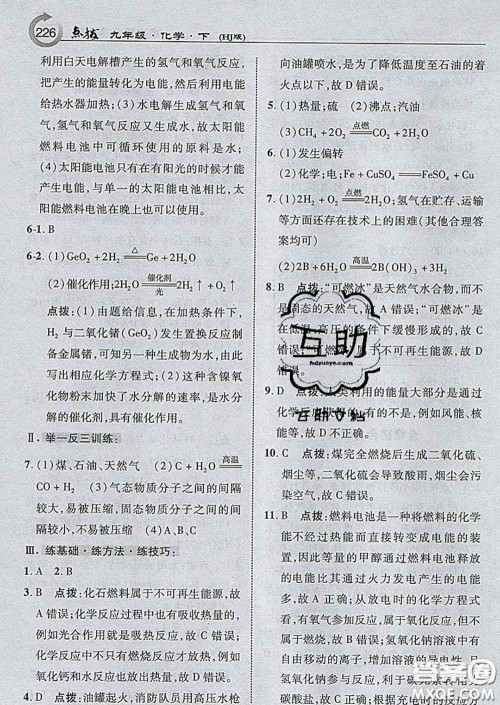 226 点拨 九年级·化学·下 (HJ版)
利用白天电解槽产生的氢气和氧气反应,
把产生的能量转化为电能,然后利用电能
给热水器加热; (3) 水电解生成氢气和氧
气,氢气和氧气反应又生成水,故太阳能
燃料电池中可循环使用的原料是水;
(4) 太阳能电池在有阳光的时候才能产
生电能,与单一的太阳能电池相比,
太阳能燃料电池在晚上也可以供电。
6-1. B
6-2. (1) GeO₂ + 2H₂ =△= Ge + 2H₂O
(2) 催化作用; 2H₂O =催化剂 光= 2H₂↑ + O₂↑
点拨: (1) 由题给信息,在加热条件下,
H₂ 与二氧化锗(GeO₂) 发生置换反应制
备金属锗,可知另一种生成物为水,由此
写出相应化学方程式; (2) 这种含镍氧
化物粉末加快了水分解的速率,是水分
解的催化剂,具有催化作用。
Ⅱ. 举一反三训练:
7. (1) 煤、石油、天然气 (2) C + H₂O =高温=
CO + H₂ (3) 气态物质分子之间的间隔
较大,易被压缩; 固态物质分子之间的间
隔较小,不易被压缩 (4) A、B、C
Ⅲ. 练基础·练方法·练技巧:
1. A 2. B
3. B 点拨: 化石燃料属于不可再生能源,故
A 错误; 化学反应过程中也有吸收热量的,
例如光合作用就是吸热反应,故 C 错误;
化学反应中不只有燃烧反应才放热,故
D 错误。
4. D 点拨: 油罐起火,消防队员用高压水枪
向油罐喷水,是为了降低温度至石油的着
火点以下,故 D 错误。
5. (1) 热量; 硫 (2) 沸点; 汽油
(3) CH₄ + 2O₂ =点燃= CO₂ + 2H₂O
6. (1) 发生偏转
(2) 化学; 电; Fe + CuSO₄ == FeSO₄ + Cu
7. (1) 2H₂ + O₂ =点燃= 2H₂O; 氢气在贮存、运输
等方面还存在技术上的困难(其他合理答
案均可)
(2) 2B + 6H₂O =高温=
8. B 点拨: “可燃冰”是天然气水合物,而不
是固态的天然气,故 A 错误; “可燃冰”是
在低温、高压的条件下缓慢形成的,故
9. D
化学反应
能、水能等
故 D 不正确。
10. C 点拨: 煤完全燃烧后生成二氧化硫、二氧
化碳,二氧化硫会导致酸雨,烟尘会污
染空气,故 C 错误。
11. B 点拨: 燃料电池是一种将化学
能不经过热而直接转变成电能的装
置,故这样的甲醇通过燃料电池释放的
电能大于其通过火力发电产生的电能,
故 A 正确; 从放电时的化学方程式
看,有氧气参加反应,属于氧化反应,
故 B 不正确; 氢氧化钠溶液中
存在自由移动的离子,所以加入氢氧
化钠能增加溶液的导电性,
互助
hdzuoye.com
互助文档
答案圈
MXQE.COM